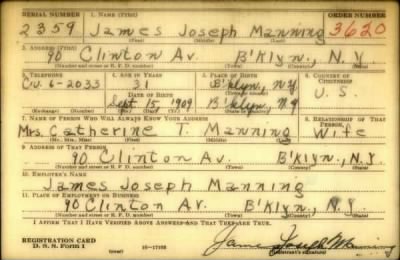 SERIAL NUMBER 1. NAME (Print) ORDER NUMBER
2359 James Joseph Manning 3620
(First) (Middle) (Last)
2. ADDRESS (Print)
90 Clinton Av. B'klyn., N.Y.
(Number and street or R. F. D. number) (Town) (County) (State)
3. TELEPHONE 4. AGE IN YEARS 5. PLACE OF BIRTH 6. COUNTRY OF CITIZENSHIP
31 B'klyn, NY
6-2033 DATE OF BIRTH U.S.
Sept 15 1909 B'klyn, N.Y
(Exchange) (Number) (Mo.) (Day) (Yr.)
7. NAME OF PERSON WHO WILL ALWAYS KNOW YOUR ADDRESS 8. RELATIONSHIP OF THAT PERSON
Mrs. Catherine T. Manning Wife
(Mr., Mrs., Miss) (First) (Middle) (Last)
9. ADDRESS OF THAT PERSON
90 Clinton Av. B'klyn., N.Y.
(Number and street or R. F. D. number) (Town) (County) (State)
10. EMPLOYER'S NAME
James Joseph Manning
11. PLACE OF EMPLOYMENT OR BUSINESS
90 Clinton Av. B'klyn., N.Y.
(Number and street or R. F. D. number) (Town) (County) (State)
I AFFIRM THAT I HAVE VERIFIED ABOVE ANSWERS AND THAT THEY ARE TRUE.
REGISTRATION CARD
D. S. S. Form 1 (over) James Joseph Manning
(Registrant's signature)